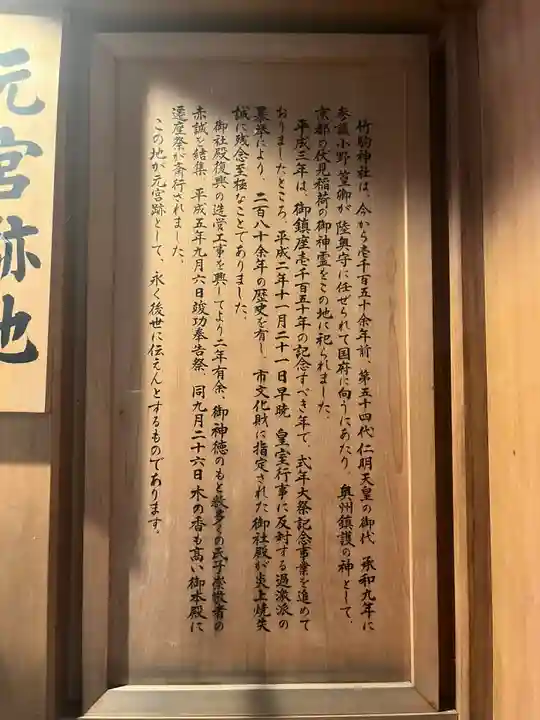 竹駒神社は、今から壱千百五十余年前、第五十四代仁明天皇の御代 承和九年に
参議小野篁卿が 陸奥守に任ぜられて国府に向うにあたり、奥州鎮護の神として、
京都の伏見稲荷の御神霊をこの地に祀られました。
平成三年は、御鎮座壱千百五十年の記念すべき年で、式年大祭記念事業を進めて
おりましたところ、平成二年十一月二十一日早暁 皇室行事に反対する過激派の
暴挙により、二百八十余年の歴史を有し、市文化財に指定された御社殿が炎上焼失
誠に残念至極なことでありました。
御社殿復興の造営工事を興してより二年有余、御神徳のもと数多くの氏子崇敬者の
赤誠を結集、平成五年九月六日竣功奉告祭 同九月二十六日木の香も高い御本殿に
遷座祭が斎行されました。
この地が元宮跡として、永く後世に伝えんとするものであります。
元宮跡地